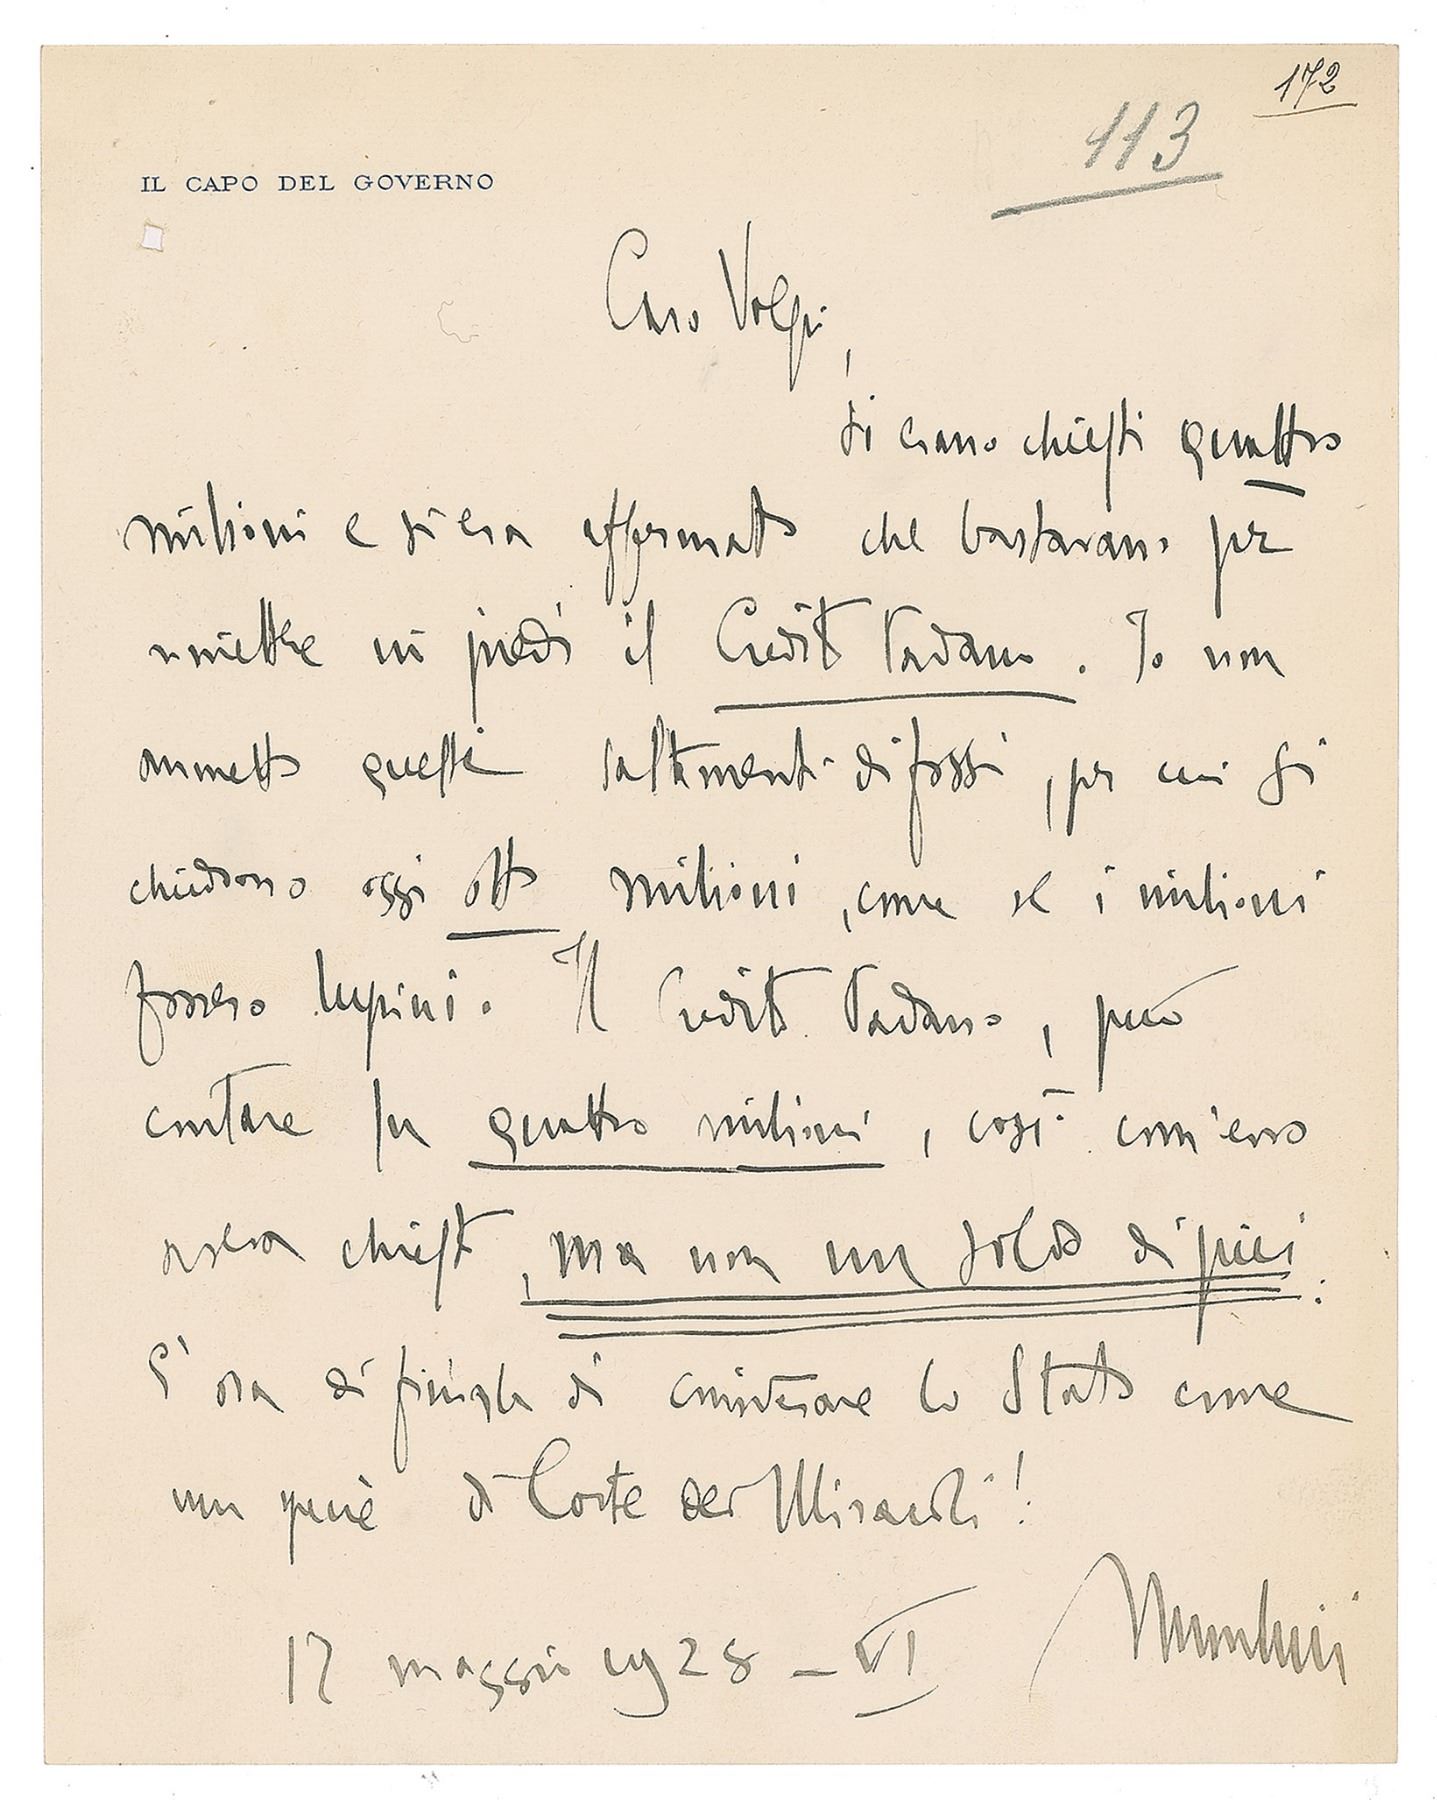 172
113
IL CAPO DEL GOVERNO
Caro Volpi,
si erano chiesti quattro
milioni e si era affermato che bastavano per
rimettere in piedi il Credito Padano. Io non
ammetto questi saltimenti di fossi, per cui si
chiedono oggi otto milioni, come se i milioni
fossero lupini. Il Credito Padano, può
contare su quattro milioni, così com'esso
aveva chiesto, ma non un soldo di più:
E' ora di finirla di considerare lo Stato come
una specie di Corte dei Miracoli!
Mussolini
17 maggio 1928 - VI